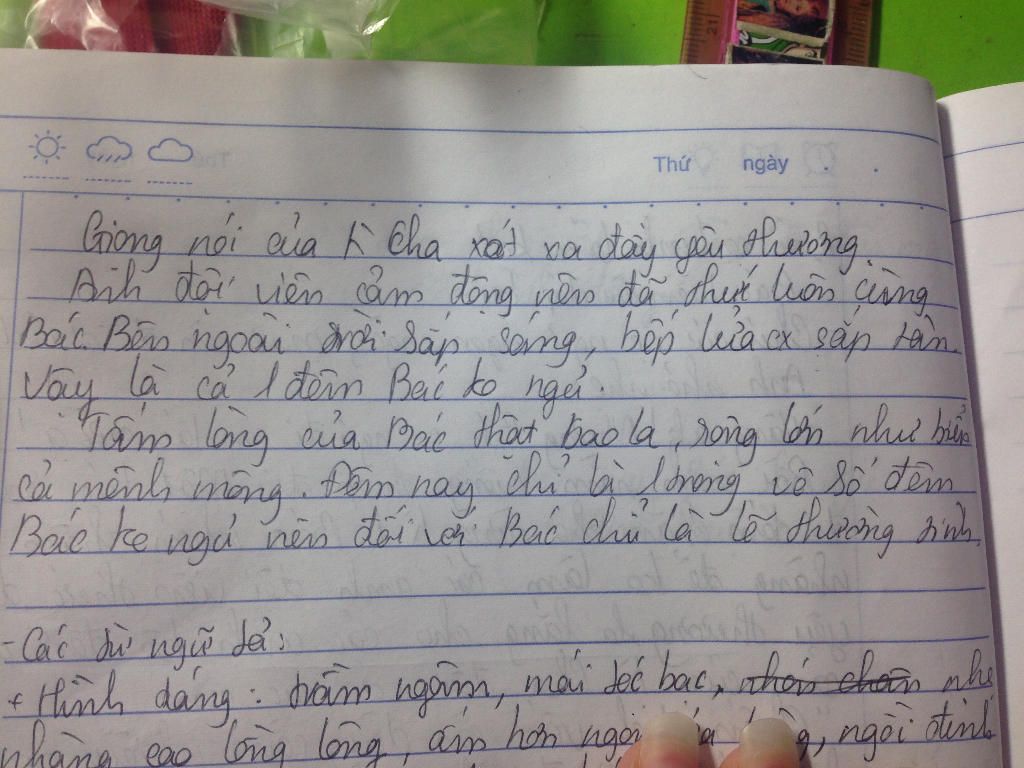 Thứ ngày . .
Giọng nói của h Cha xót xa đầy yêu thương.
Anh đội viên cảm động nên đã thức luôn cùng
Bác. Bên ngoài trời sắp sáng, bếp lửa cx sắp tàn.
Vậy là cả 1 đêm Bác ko ngủ.
Tấm lòng của Bác thật bao la, rộng lớn như biển
cả mênh mông. Đêm nay chỉ là 1 trong vô số đêm
Bác ko ngủ nên đối với Bác chỉ là lẽ thường tình.
- Các từ ngữ tả:
+ Hình dáng: trầm ngâm, mái tóc bạc, nhón chân nhẹ
nhàng cao lồng lộng, ấm hơn ngọn lửa hồng, ngồi đinh